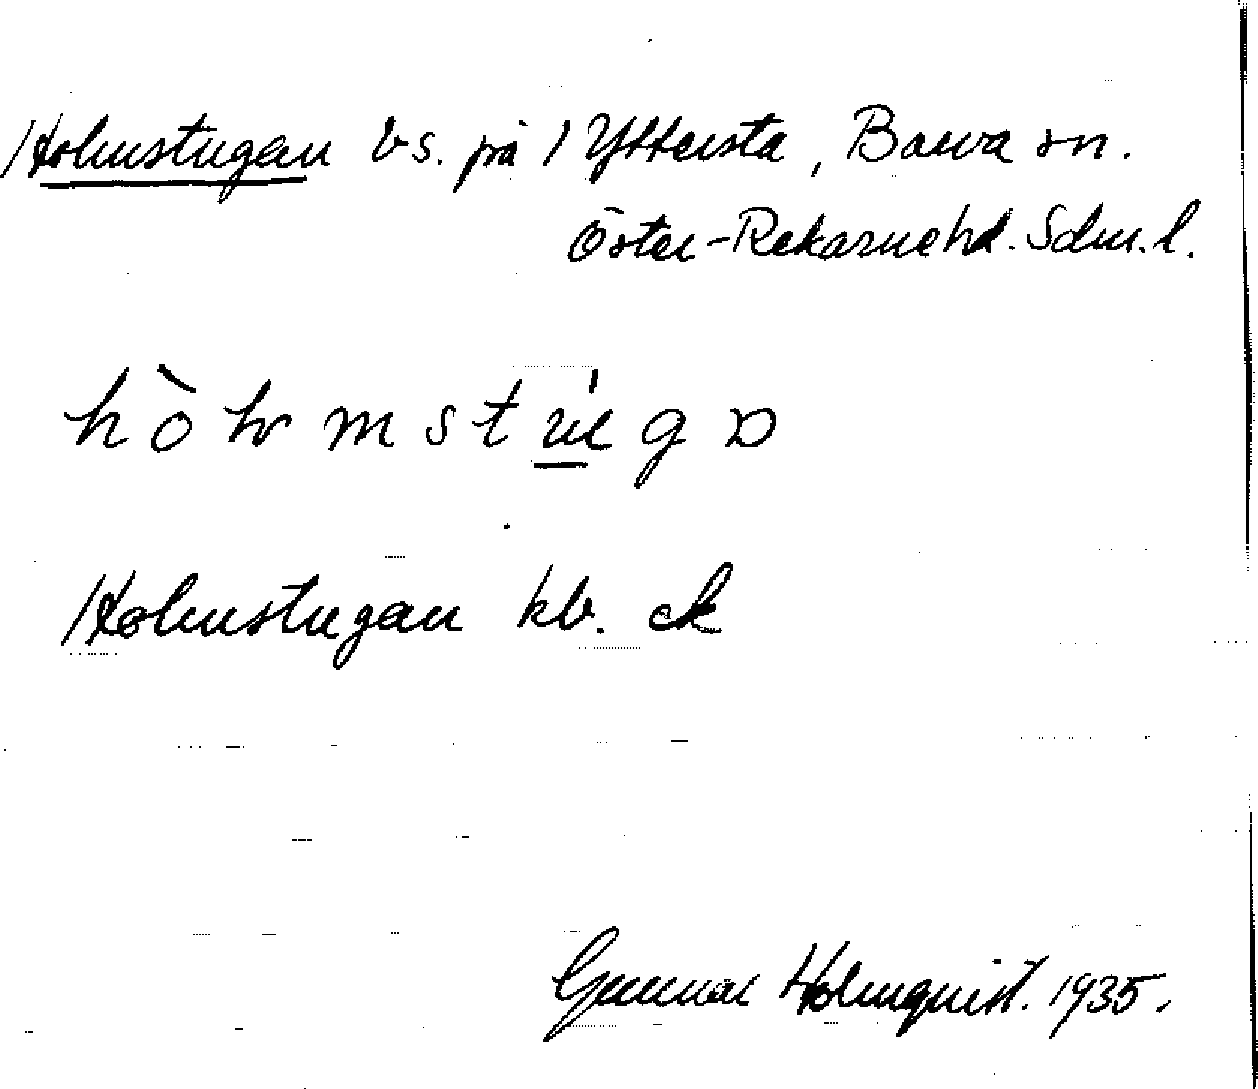 Holmstugan bs. på 1 Yttersta, Barva sn.
Öster-Rekarne hd. Sdm. l.
Holmstugan kb. ek
Gunnar Holmquist. 1935.